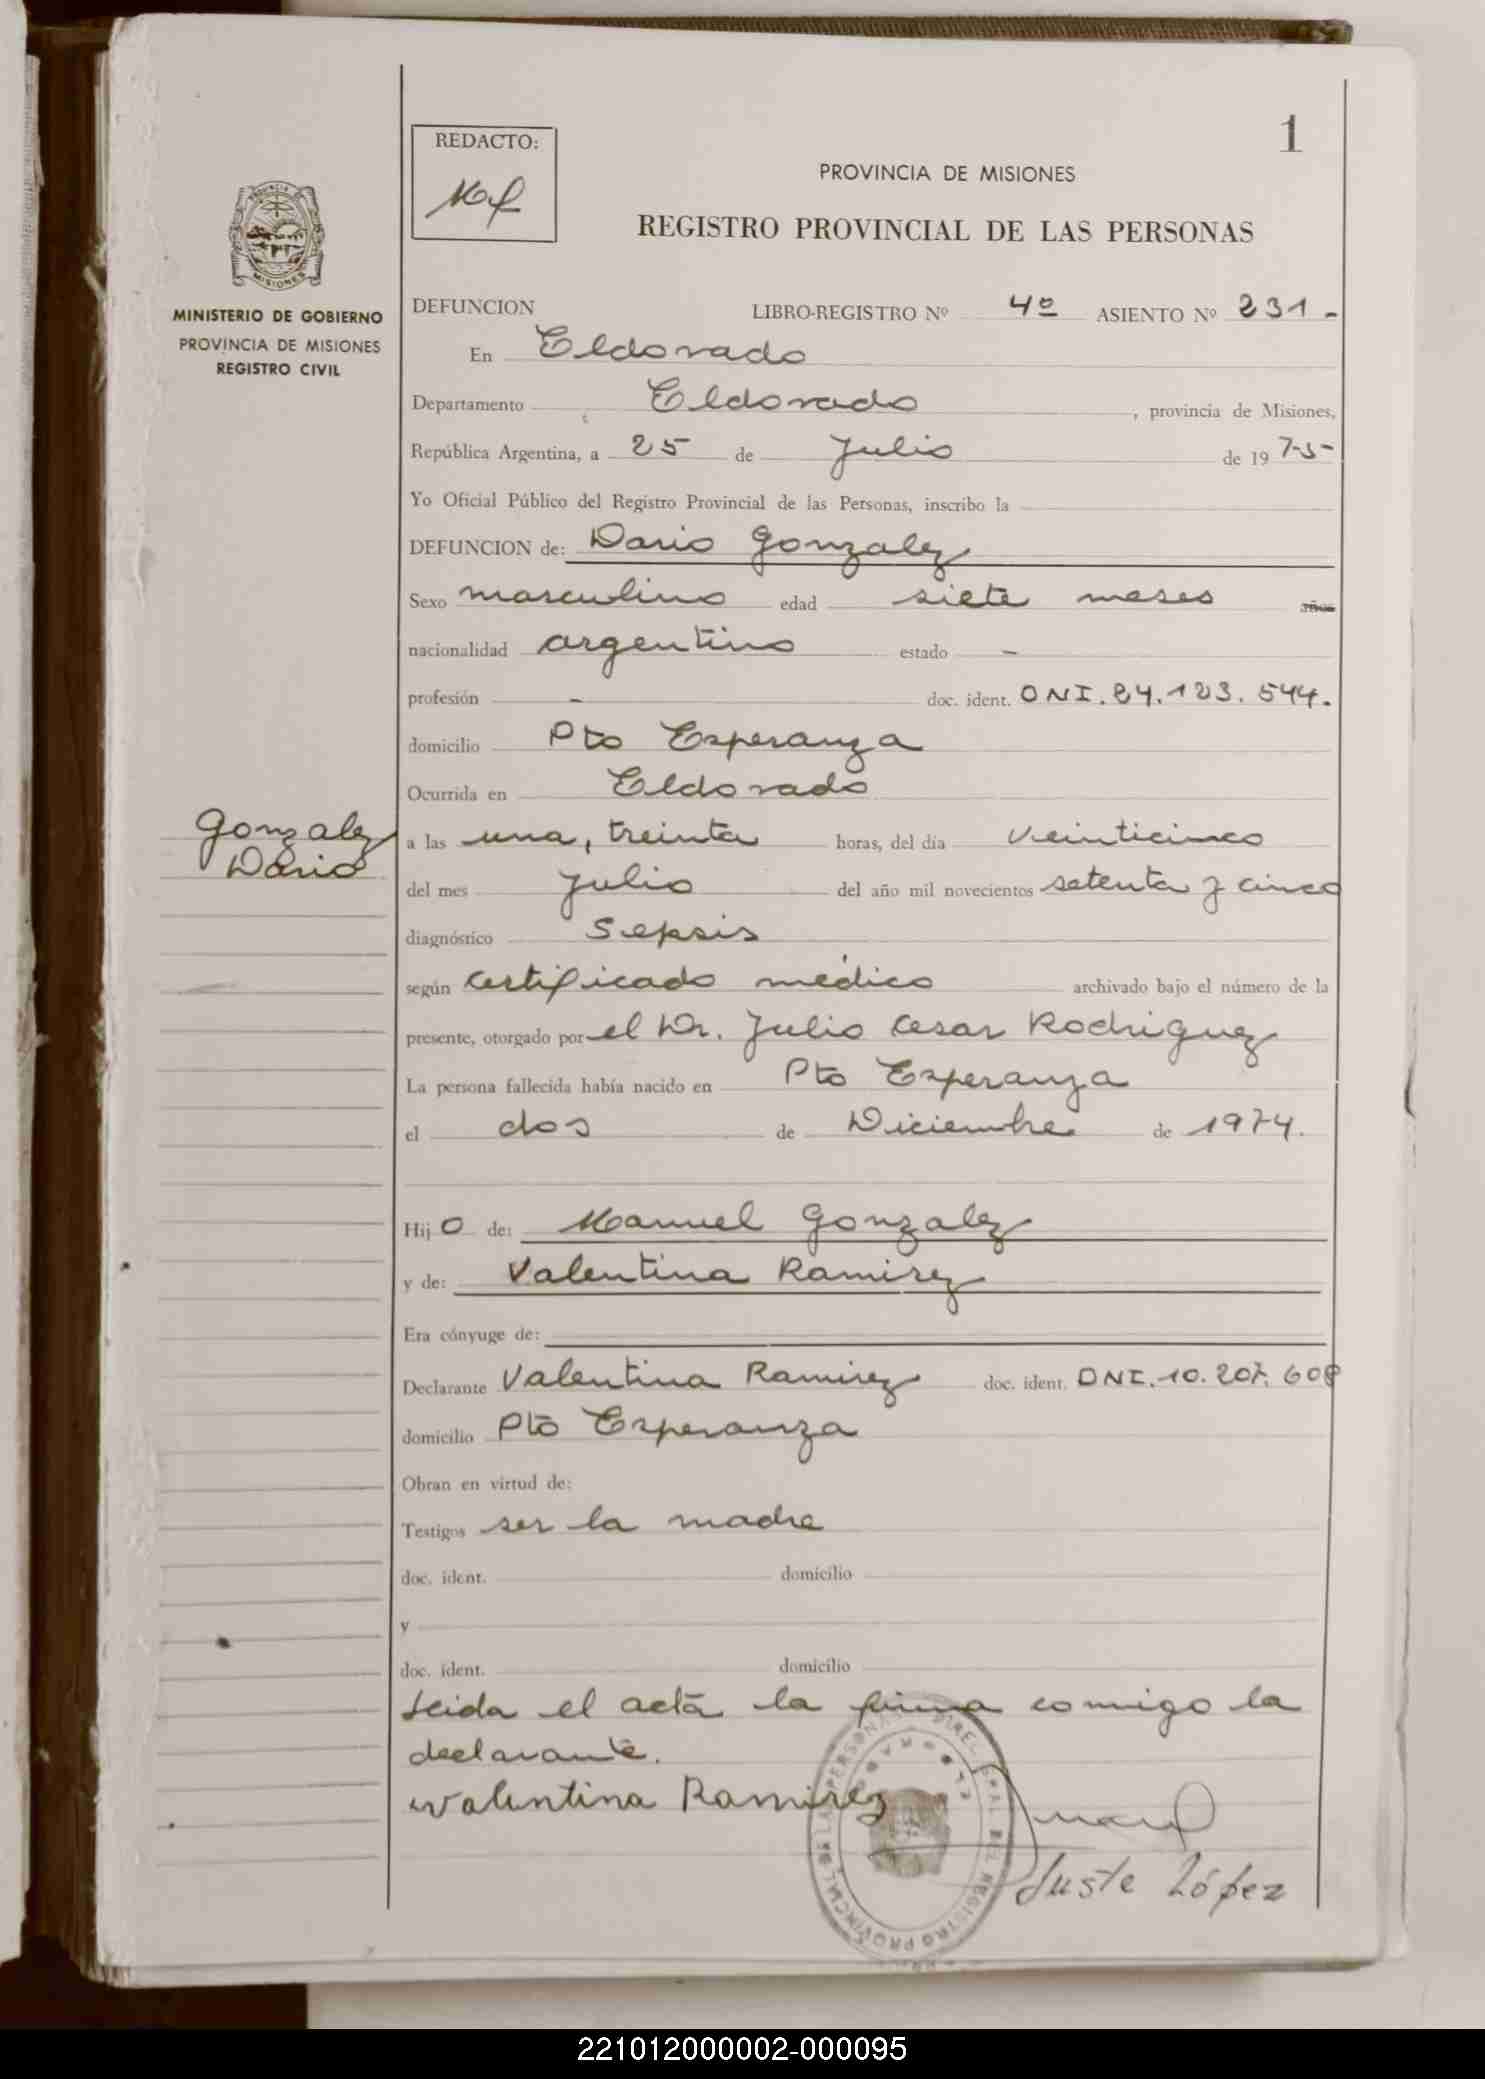 1
REDACTO:
PROVINCIA DE MISIONES
REGISTRO PROVINCIAL DE LAS PERSONAS
MISIONES
MINISTERIO DE GOBIERNO
PROVINCIA DE MISIONES
REGISTRO CIVIL
DEFUNCION LIBRO-REGISTRO Nº 4º ASIENTO Nº 231-
En Eldorado
Departamento Eldorado, provincia de Misiones,
República Argentina, a 25 de Julio de 1975-
Yo Oficial Público del Registro Provincial de las Personas, inscribo la
DEFUNCION de: Dario Gonzalez
Sexo masculino edad siete meses años
nacionalidad argentino estado -
profesión - doc. ident. DNI. 24.123.544.
domicilio Pto Esperanza
Ocurrida en Eldorado
Gonzalez
Dario
a las una, treinta horas, del día veinticinco
del mes Julio del año mil novecientos setenta y cinco
diagnóstico Sepsis
según certificado médico archivado bajo el número de la
presente, otorgado por el Dr. Julio Cesar Rodriguez
La persona fallecida había nacido en Pto Esperanza
el dos de Diciembre de 1974.
Hijo de: Manuel Gonzalez
y de: Valentina Ramirez
Era cónyuge de:
Declarante Valentina Ramirez doc. ident. DNI. 10.207.608
domicilio Pto Esperanza
Obran en virtud de:
Testigos ser la madre
doc. ident. domicilio
y
doc. ident. domicilio
Leida el acta la firma comigo la
declarante.
Valentina Ramirez
Juste López
221012000002-000095